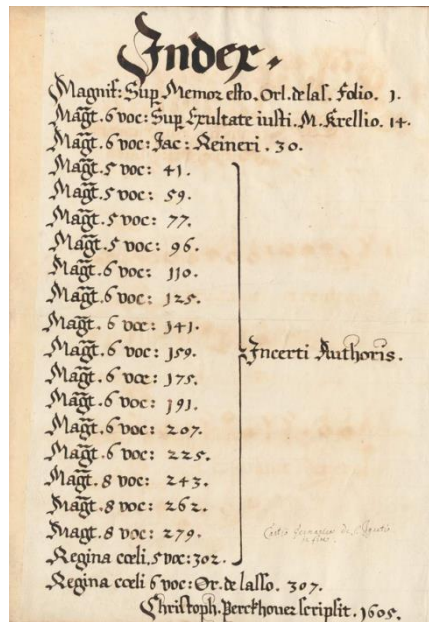 Index.
Magnif: Sup Memor esto. Orl. de las. Folio. 1.
Magt. 6 voc: Sup Exultate iusti. M. Krellio. 14.
Magt. 6 voc: Jac: Reineri. 30.
Magt. 5 voc: 41.
Magt. 5 voc: 59.
Magt. 5 voc: 77.
Magt. 5 voc: 96.
Magt. 6 voc: 110.
Magt. 6 voc: 125.
Magt. 6 voc: 141.
Magt. 6 voc: 159.
Incerti Authoris.
Magt. 6 voc: 175.
Magt. 6 voc: 191.
Magt. 6 voc: 207.
Magt. 6 voc: 225.
Magt. 8 voc: 243.
Magt. 8 voc: 262.
Magt. 8 voc: 279.
Regina cœli. 5 voc: 302.
Regina cœli 6 voc: Or. de lasso. 307.
Christoph. Perckhouer scripsit. 1605.